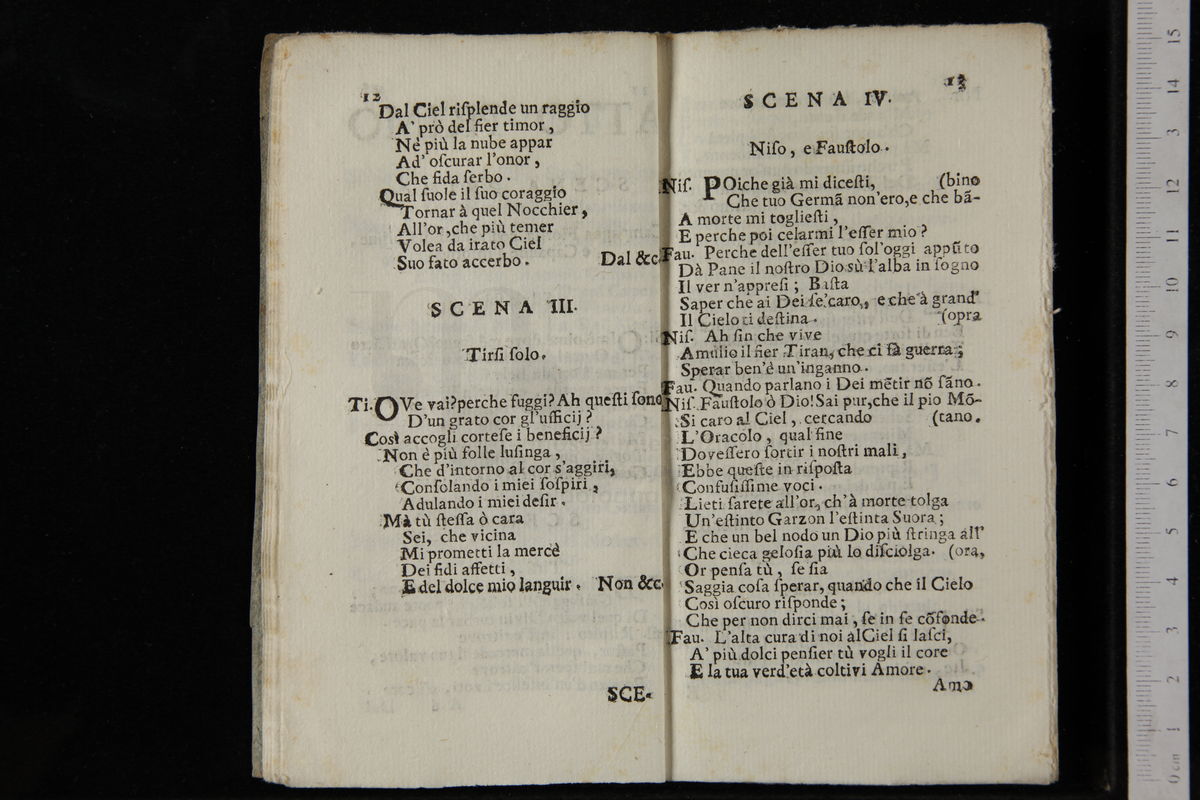 12
Dal Ciel riſplende un raggio
A' prò del fier timor,
Nè più la nube appar
Ad' oſcurar l'onor,
Che fida ſerbo.
Qual ſuole il ſuo coraggio
Tornar à quel Nocchier,
All'or, che più temer
Volea da irato Ciel
Suo fato accerbo. Dal &c.
SCENA III.
Tirſi ſolo.
Ti. OVe vai? perche fuggi? Ah queſti ſono
D'un grato cor gl'ufficij?
Così accogli corteſe i beneficij?
Non è più folle luſinga,
Che d'intorno al cor s'aggiri,
Conſolando i miei ſoſpiri,
Adulando i miei deſir.
Mà tù ſteſſa ò cara
Sei, che vicina
Mi prometti la mercè
Dei fidi affetti,
E del dolce mio languir. Non &c.
SCE-
13
SCENA IV.
Niſo, e Fauſtolo.
Niſ. POiche già mi diceſti, (bino
Che tuo Germã non'ero, e che bã-
A morte mi toglieſti,
E perche poi celarmi l'eſſer mio?
Fau. Perche dell'eſſer tuo ſol'oggi appũto
Dà Pane il noſtro Dio sù l'alba in ſogno
Il ver n'appreſi; Baſta
Saper che ai Dei ſe' caro, e che à grand'
Il Cielo ti deſtina. (opra
Niſ. Ah fin che vive
Amulio il fier Tiran, che ci fà guerra;
Sperar ben'è un'inganno.
Fau. Quando parlano i Dei mẽtir nõ ſãno.
Niſ. Fauſtolo ò Dio! Sai pur, che il pio Mõ-
Si caro al Ciel, cercando (tano.
L'Oracolo, qual fine
Doveſſero ſortir i noſtri mali,
Ebbe queſte in riſpoſta
Confuſiſſime voci.
Lieti ſarete all'or, ch'à morte tolga
Un'eſtinto Garzon l'eſtinta Suora;
E che un bel nodo un Dio più ſtringa all'
Che cieca geloſia più lo diſciolga. (ora,
Or penſa tù, ſe ſia
Saggia coſa ſperar, quando che il Cielo
Così oſcuro riſponde;
Che per non dirci mai, ſe in ſe cõfonde.
Fau. L'alta cura di noi al Ciel ſi laſci,
A' più dolci penſier tù vogli il core
E la tua verd'età coltivi Amore.
Amo